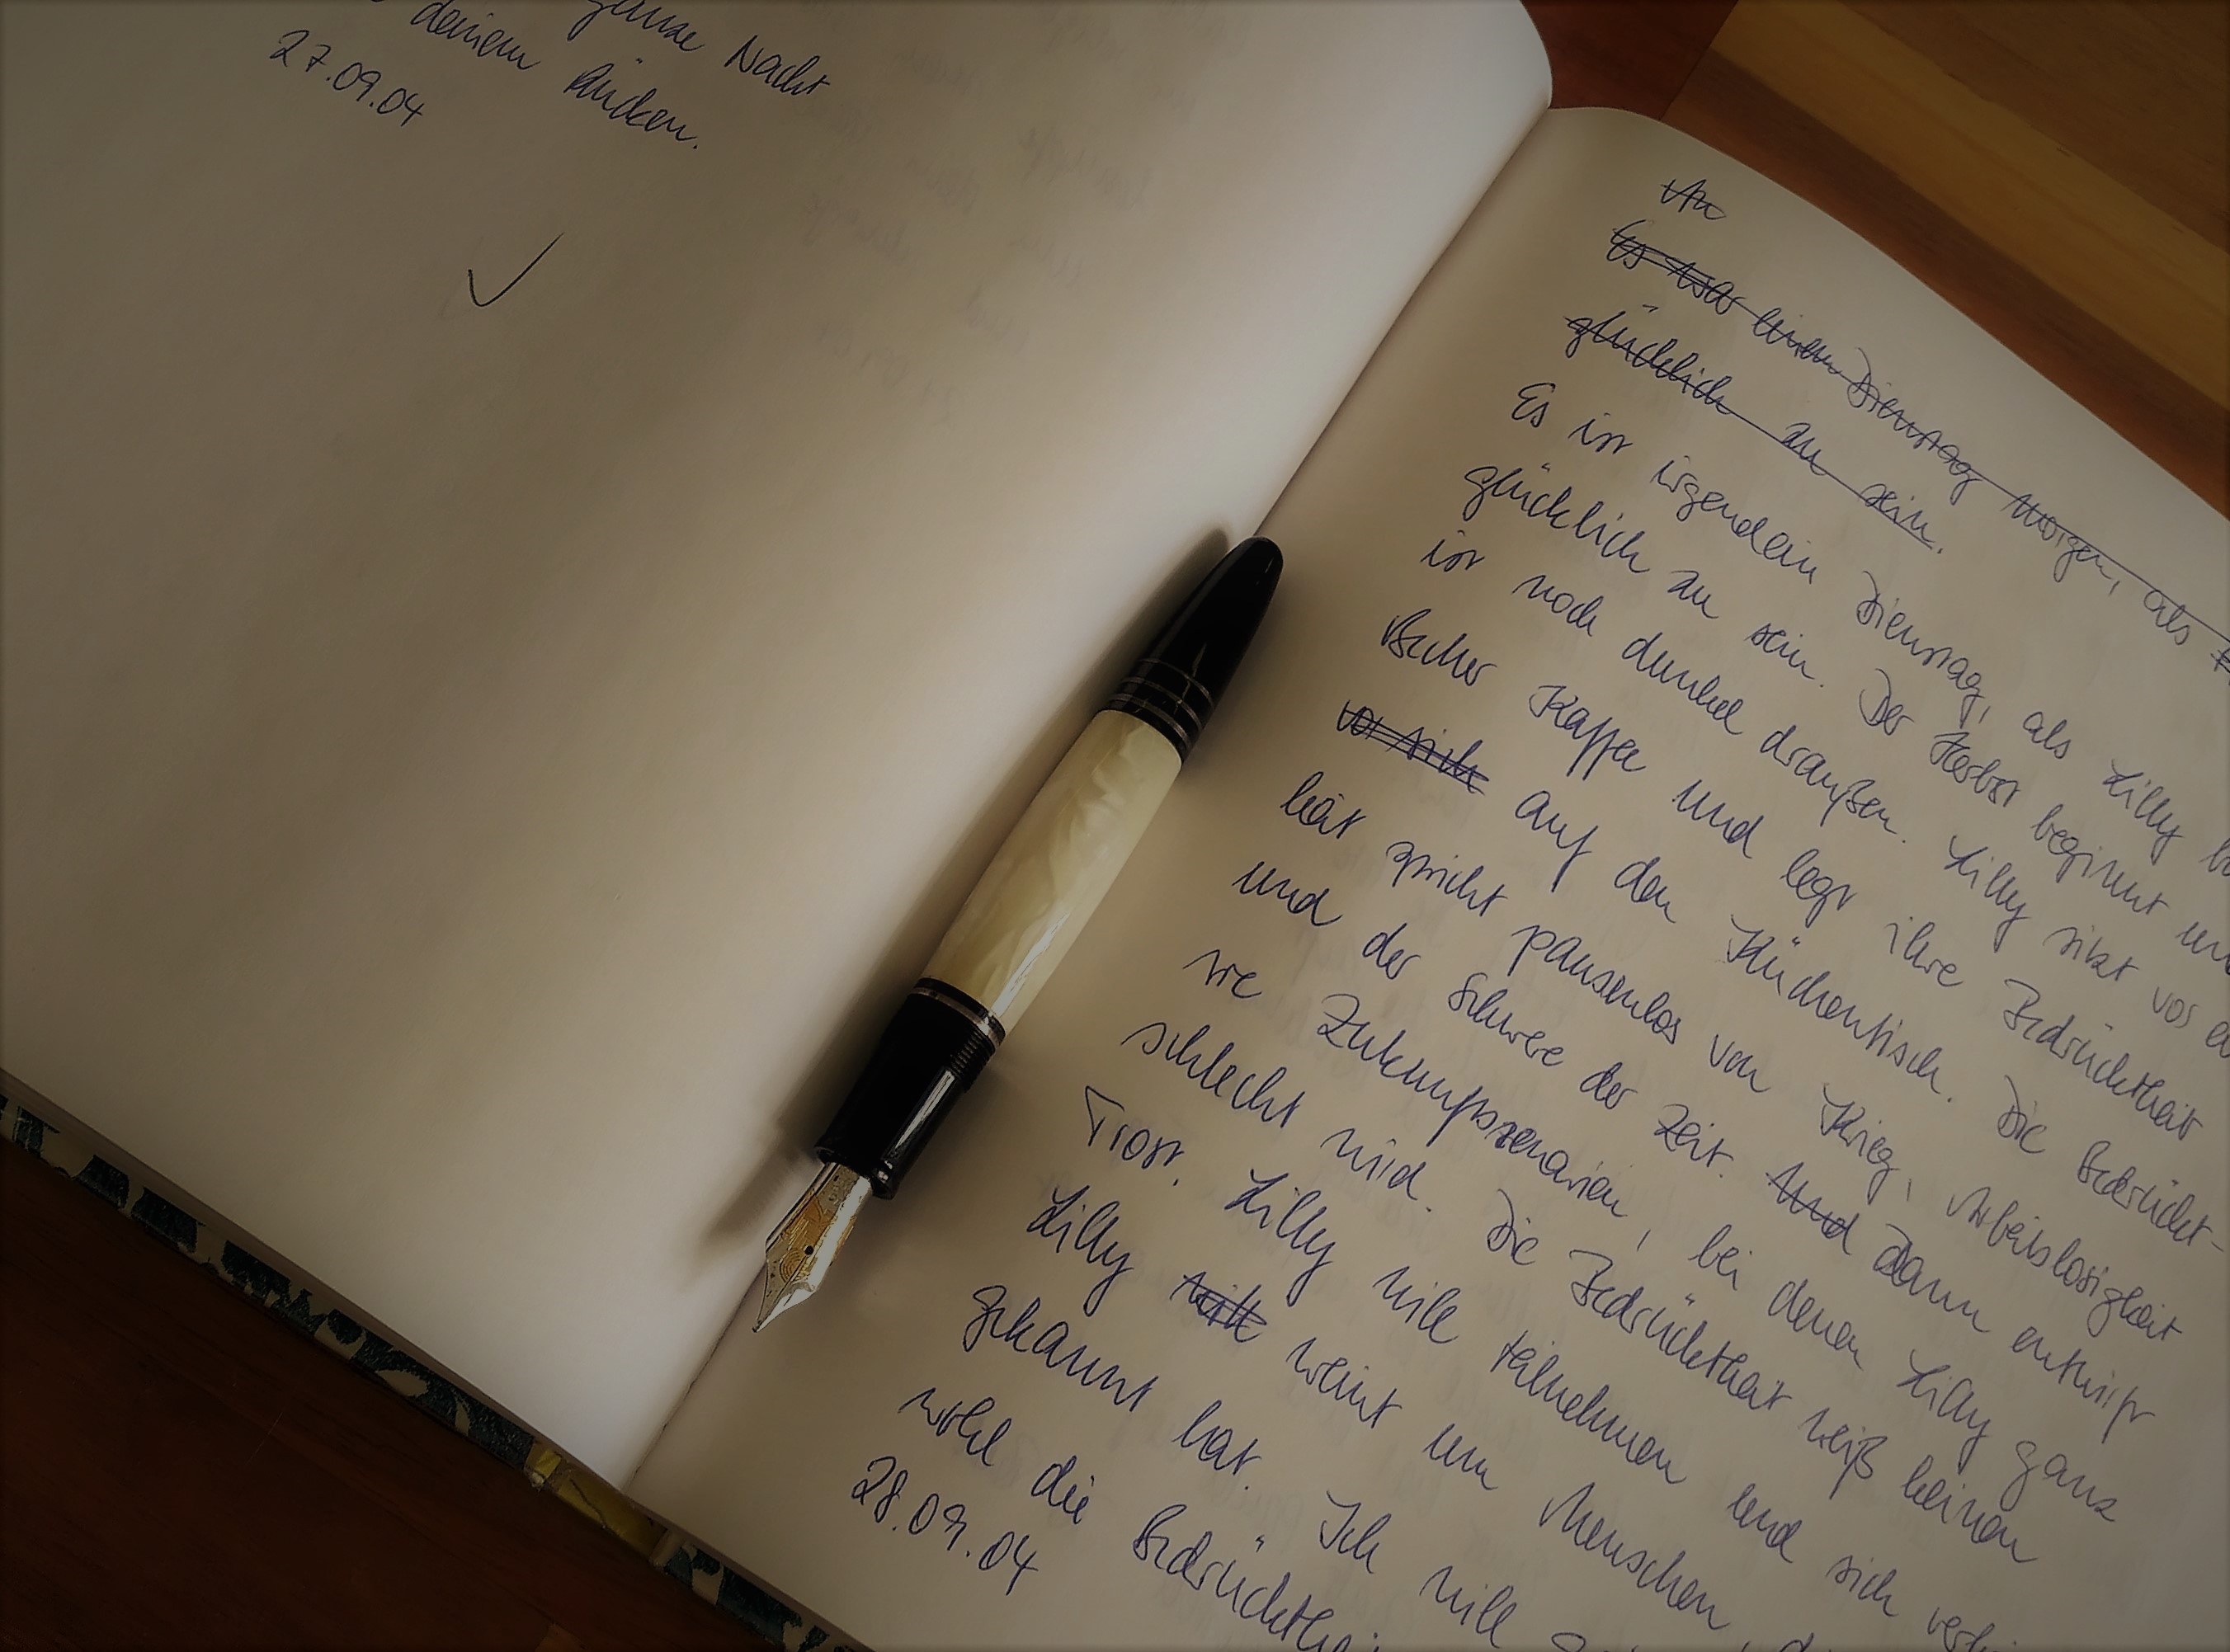 ganze Nacht
deinem Rücken.
27.09.04
An
Es war einen Dienstag Morgen, als
glücklich zu sein.
Es ist irgendein Dienstag, als Lilly
glücklich zu sein. Der Herbst beginnt
ist noch dunkel draußen. Lilly sitzt vor
Becher Kaffee und legt ihre Bedrücktheit
vor sich auf den Küchentisch. Die Bedrückt-
heit spricht pausenlos von Krieg, Arbeitslosigkeit
und der Schwere der Zeit. Und Dann entwirft
sie Zukunftsszenarien, bei denen Lilly ganz
schlecht wird. Die Bedrücktheit weiß keinen
Trost. Lilly will teilnehmen und sich
Lilly weint um Menschen,
gekannt hat. Ich will
wohl die
28.09.04